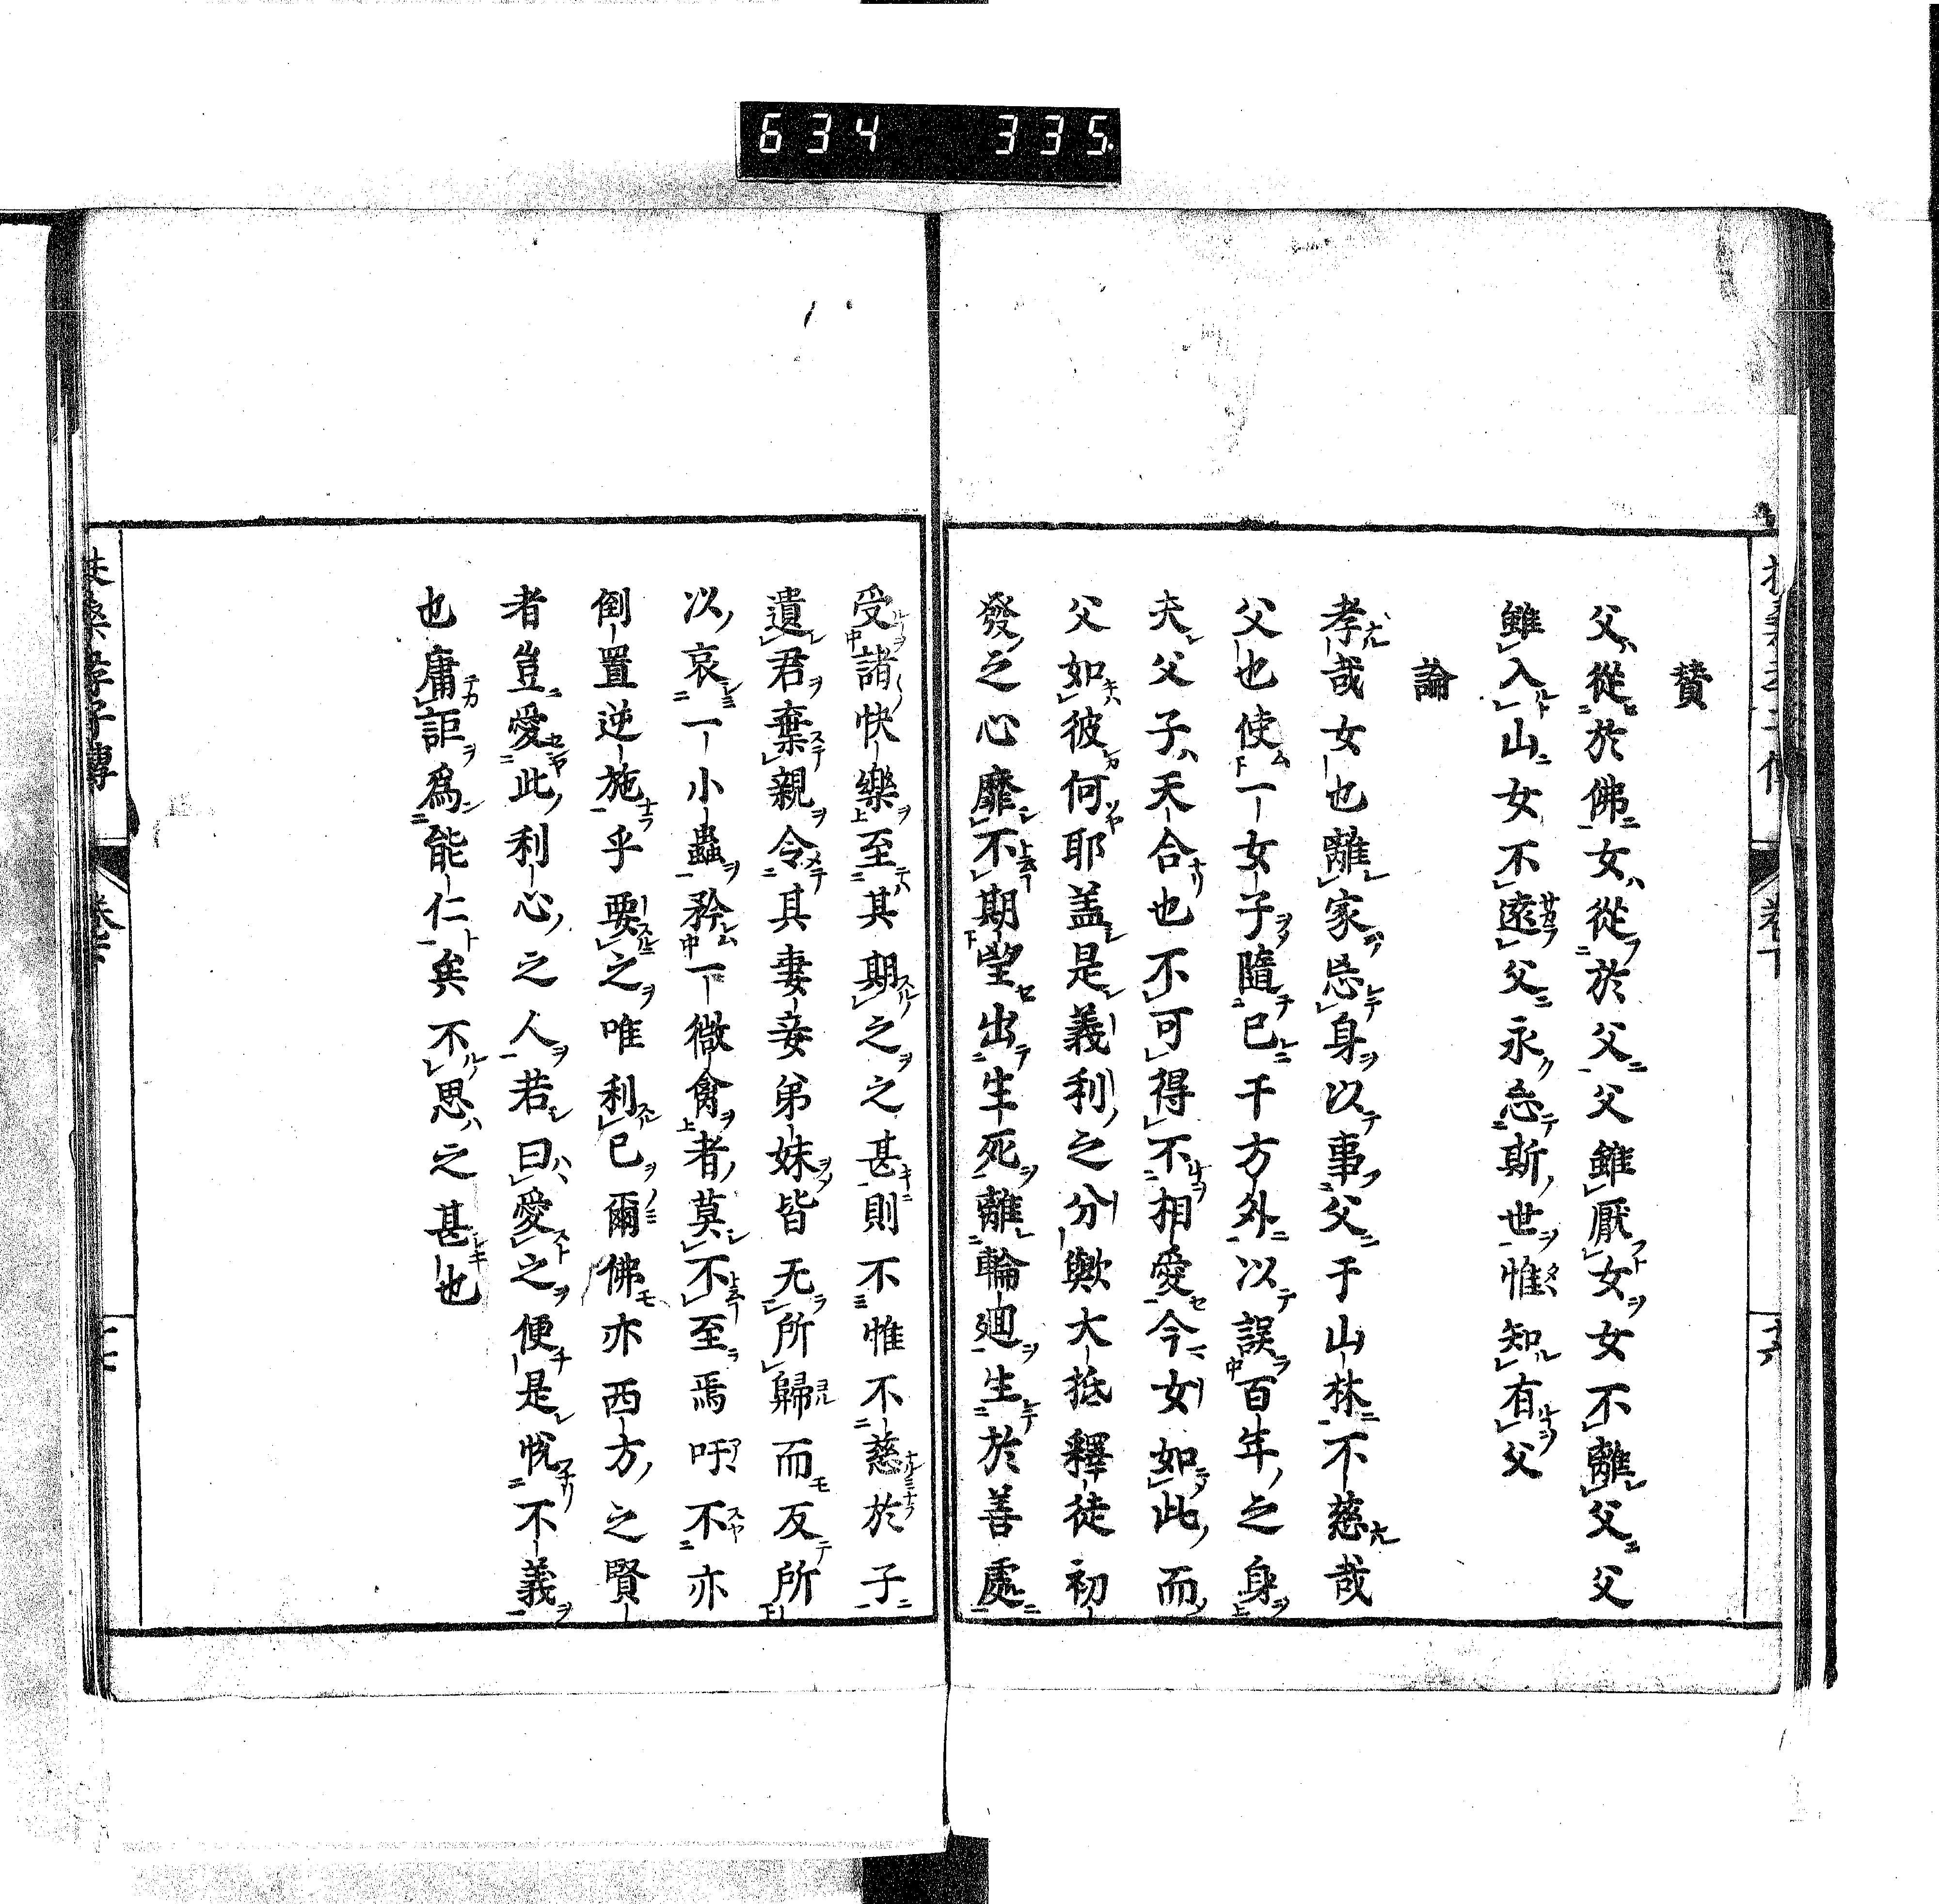 634 335
賛
父從於佛女從於父父雖厭女女不離父父
雖入山女不遠父永忘斯世惟知有父
論
孝哉女也離家忘身以事父于山林不慈哉
父也使一女子隨已千方外以誤百年之身
夫父子天合也不可得不相愛今女如此而
父如彼何耶盖是義利之分歟大抵釋徒初
發之心靡不期望出生死離輪廻生於善處
受諸快樂至其期之之甚則不惟不慈於子
遺君棄親令其妻妾弟妹皆无所歸而反所
以哀一小蟲矜一微禽者莫不至焉吁不亦
倒置逆施乎要之唯利已爾佛亦西方之賢
者豈愛此利心之人若曰愛之便是悅不義
也庸詎爲能仁矣不思之甚也
扶桑孝子傳